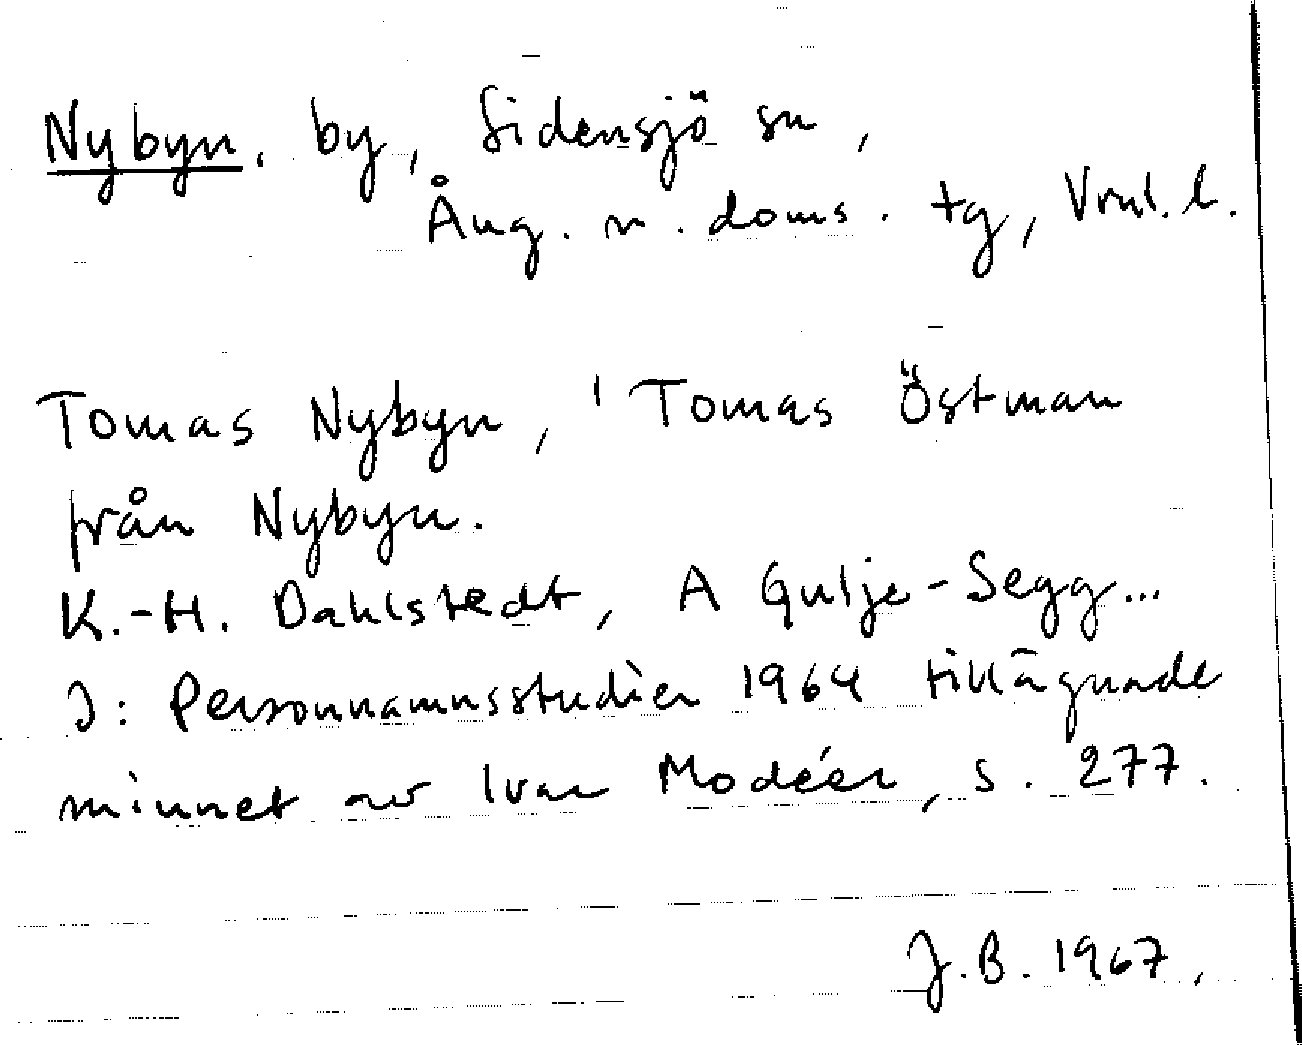 Nybyn. by, Sidensjö sn,
Ång. n. doms. tg, Vnl. l.
Tomas Nybyn, ' Tomas Östman
från Nybyn.
K.-H. Dahlstedt, A Gulje-Segg...
I: Personnamnsstudier 1964 tillägnade
minnet av Ivar Modéer, s. 277.
J.B. 1967.